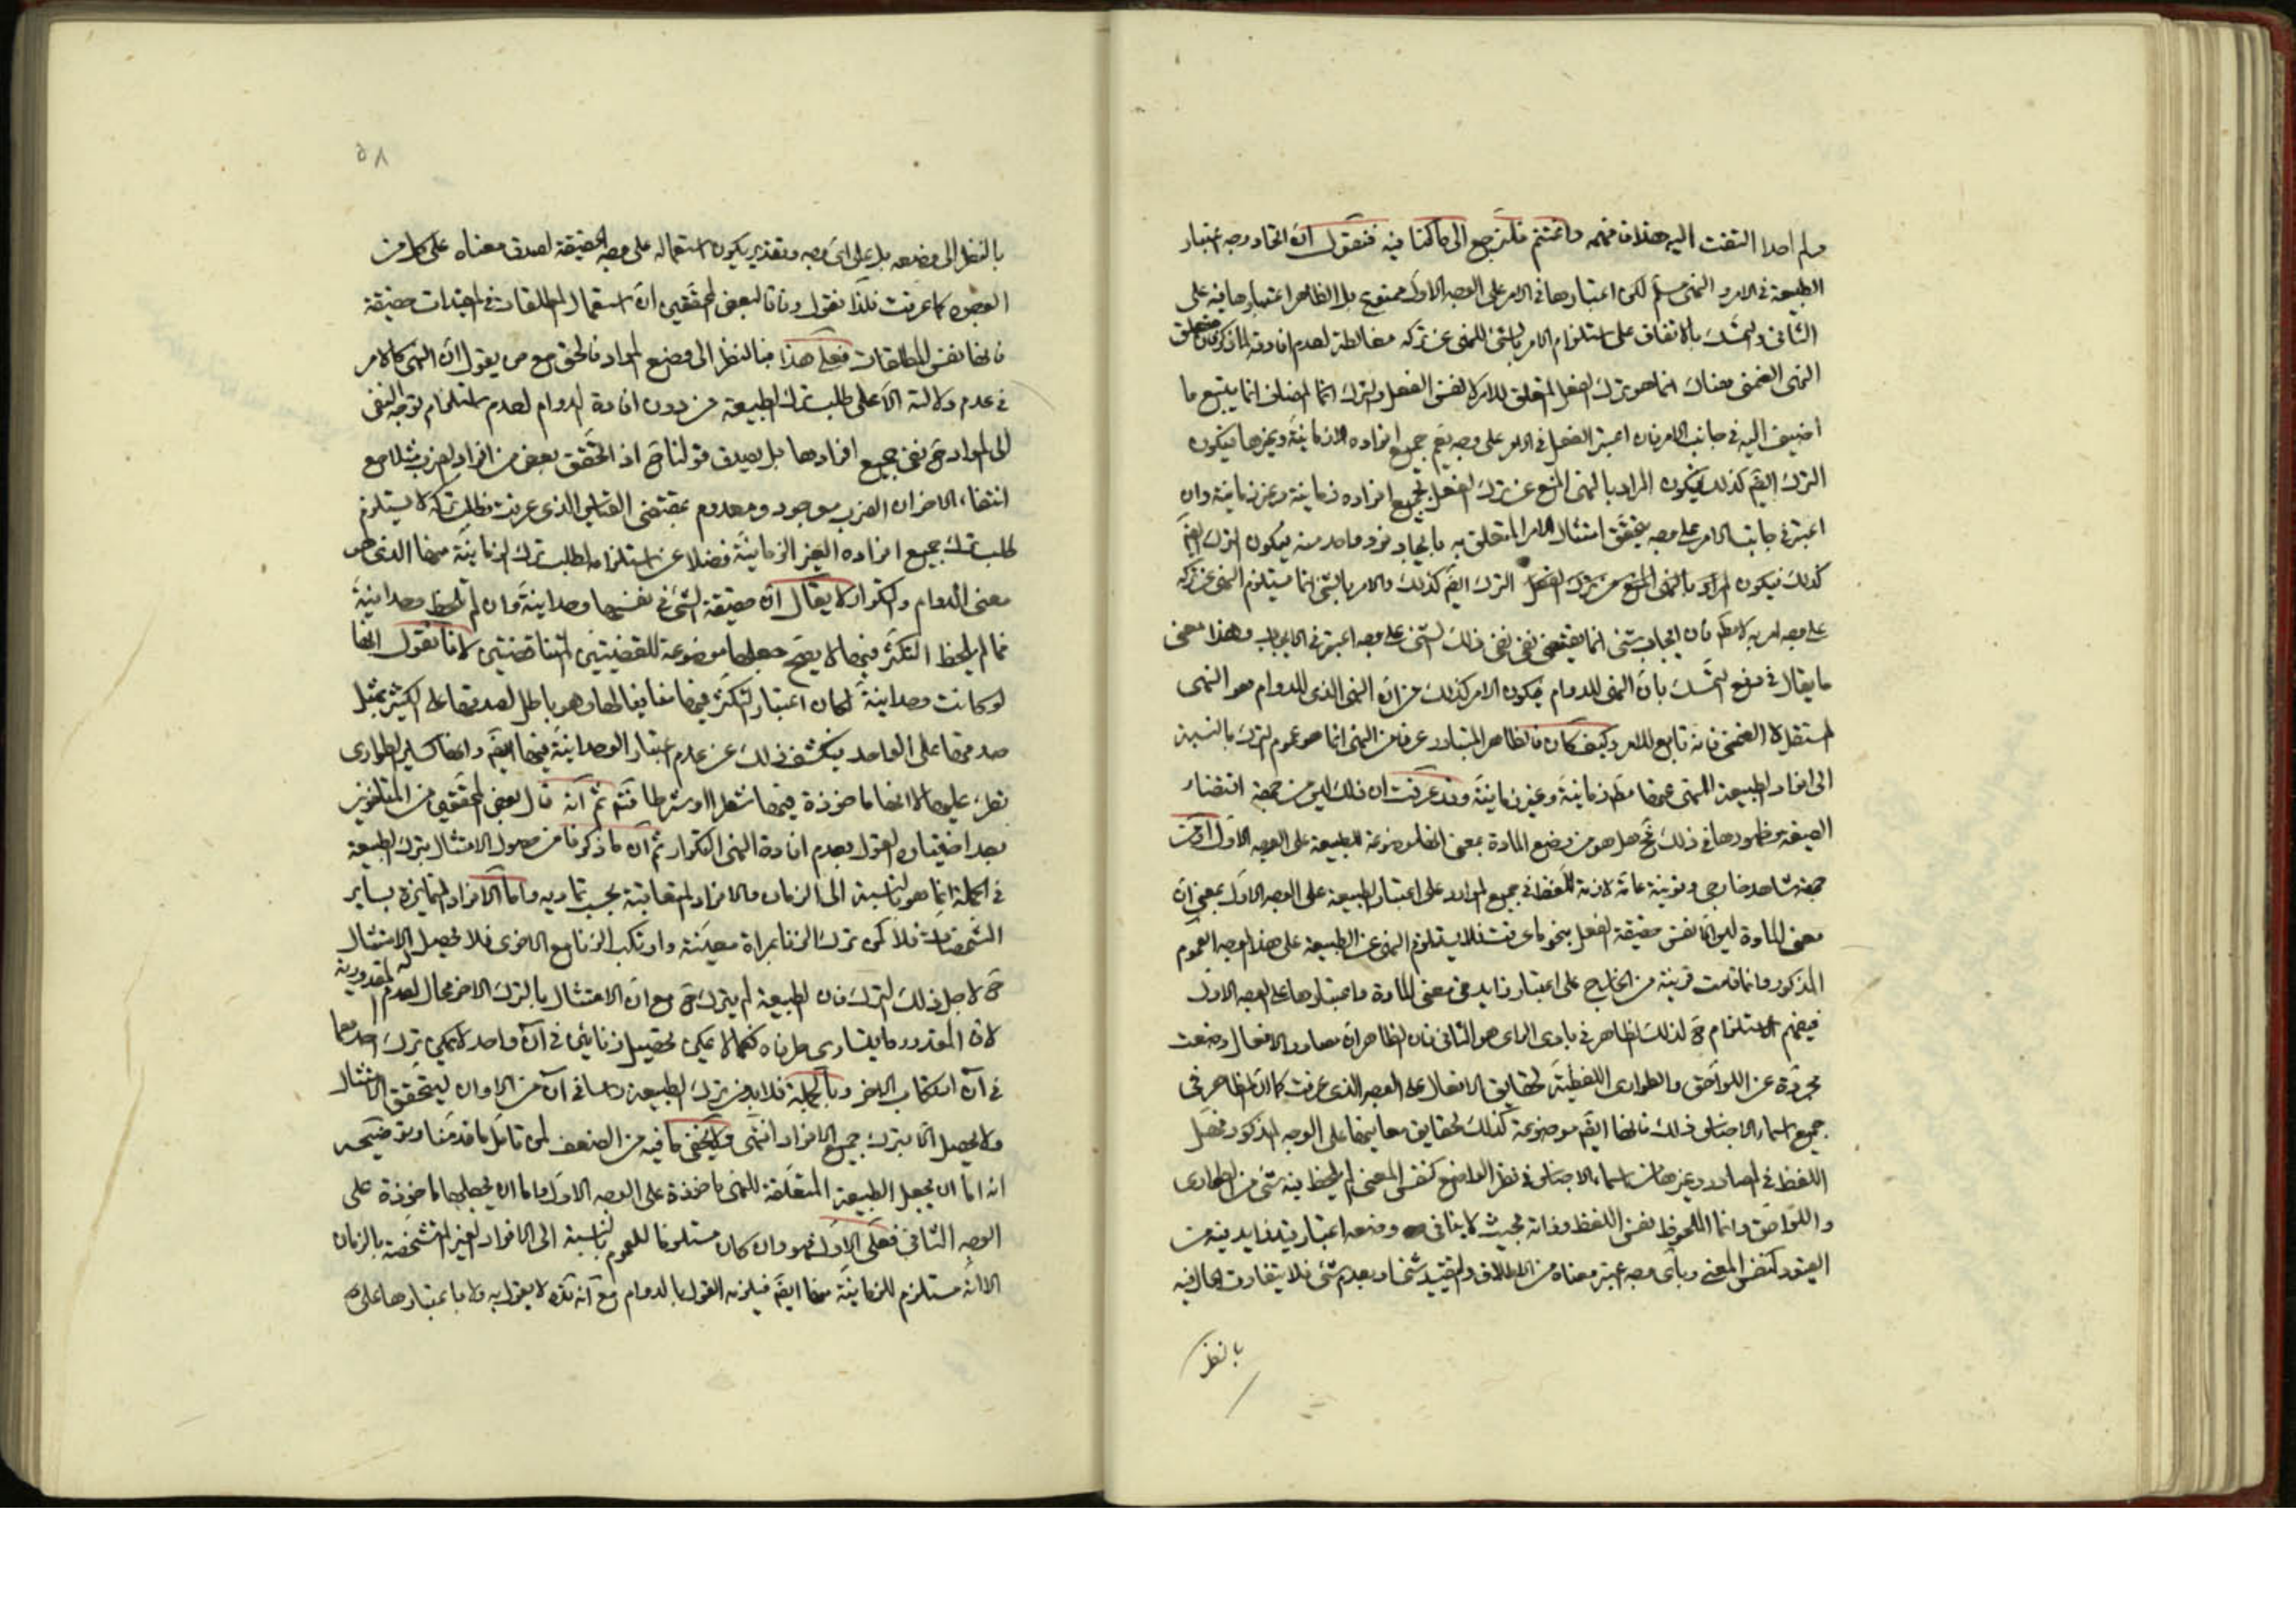 ولم احدا التفت اليه هذا فافهمه واغتنم فلنرجع الى ما كنا فيه فنقول ان اتحاد وجه اعتبار
الطبيعة في الامر و النهى مسلم لكن اعتبارها في الامر على الوجه الاول ممنوع بل الظاهر اعتبارها فيه على
الثانى والتمسك بالاتفاق على استلزام الامر بالشئ للنهى عن تركه مغالطة لعدم افادته لما ذكر فان متعلق
النهى الضمنى هناك انما هو ترك الفعل المتعلق للامر لا نفس الفعل والترك انما المضاف انما يتبع ما
اضيف اليه في جانب الامر فان اعتبر الفعل في الامر على وجه يعم جميع افراده الزمانية وغيرها فيكون
الترك ايضا كذلك فيكون المراد بالنهى المنع عن ترك الفعل بجميع افراده زمانية وغير زمانية وان
اعتبر في جانب الامر على وجه يتحقق امتثال الامر المتعلق به بايجاد فرد واحد منه فيكون الترك ايضا
كذلك فيكون المراد بالنهى المنع عن ترك الفعل الترك ايضا كذلك والامر بالشئ انما يستلزم النهى عن تركه
على وجه امر به لا مطلقا فان ايجاب شئ انما يقتضى نفى ذلك الشئ على وجه اعتبر في الايجاب وهذا معنى
ما يقال في دفع التمسك بان النهى للدوام فيكون الامر كذلك من ان النهى الذى للدوام هو النهى
المستقل لا الضمنى فانه تابع للامر وكيف كان فالظاهر المتبادر عرفا من النهى انما هو عموم الترك بالنسبة
الى افراد الطبيعة المنهى عنها مطلقا زمانية وغير زمانية وقد عرفت ان ذلك ليس من جهة اقتضاء
الصيغة وظهورها في ذلك فح هل هو من وضع المادة بمعنى انها موضوعة للطبيعة على الوجه الاول او من
جهة شاهد خارجى وقرينة عامة لازمة للفظ في جميع الموارد على اعتبار الطبيعة على الوجه الاول بمعنى ان
معنى المادة ليس الا نفس حقيقة الفعل بنحو ما عرفت فلا يستلزم النهى عن الطبيعة على هذا الوجه العموم
المذكور وانما قامت قرينة من الخارج على اعتبار زايد في معنى المادة واعتبارها على الوجه الاول
فيفهم الاستلزام ح لذلك الظاهر في بادى الراى هو الثانى فان الظاهر ان مصادر الافعال وضعت
مجردة عن اللواحق والطوارى اللفظية لحقايق الافعال على الوجه الذى عرفت كما ان الظاهر في
جميع اسماء الاجناس ذلك فانها ايضا موضوعة كذلك لحقايق معانيها على الوجه المذكور فحال
اللفظ في المصادر وغيرها من اسماء الاجناس في نظر الواضع كنفس المعنى لم يلحظ فيه شئ من الطوارى
واللواحق وانما الملحوظ نفس اللفظ وذاته بحيث لا ينافى وضعه اعتبار قيد زايد فيه من
القيود كنفس المعنى وباى وجه اعتبر معناه من الاطلاق والتقييد بشئ او بعدم شئ فلا يتفاوت الحال فيه
بالنظر
٥٨
بالنظر الى وضعه بل على اى وجه وتقدير يكون استعماله على وجه الحقيقة لصدق معناه على كل من
الوجوه كما عرفت فلذا نقول وفاقا لبعض المحققين ان استعمال المطلقات في المقيدات حقيقة
فانها نفس المطلقات فعلى هذا فبالنظر الى وضع المواد فالحق مع من يقول ان النهى كالامر
في عدم دلالته الا على طلب ترك الطبيعة من دون افادة الدوام لعدم استلزام توجه النفى
الى المواد ح نفى جميع افرادها بل يصدق قولنا ح اذ اتحقق بعض من افراد الضرب مثلا مع
انتفاء الاخر ان الضرب موجود ومعدوم بمقتضى القياس الذى عرفت فطلب تركه لا يستلزم
طلب ترك جميع افراده الغير الزمانية فضلا عن استلزامه لطلب ترك الزمانية منها الذى هو
معنى الدوام والتكرار لا يقال ان حقيقة الشئ في نفسها وحدانية وان لم يلحظ وحدانيته
فما لم يلحظ التكثر فيها لا يصح جعلها موضوعة للقضيتين المتناقضتين لانا نقول انها
لو كانت وحدانية لكان اعتبار التكثر فيها منافيا لها وهو باطل لصدقها على الكثير بمثل
صدقها على الواحد فيكشف ذلك عن عدم اعتبار الوحدانية فيها ايضا وانها كساير الطوارى
تطرء عليها لا انها ماخوذة فيها شطرا او شرطا فتم ثم انه قال بعض المحققين من المتاخرين
بعد اختياره القول بعدم افادة النهى التكرار ثم ان ما ذكرنا من حصول الامتثال بترك الطبيعة
في الجملة انما هو بالنسبة الى الزمان والافراد المتعاقبة بحسب تماديه واما الافراد المتمايزة بساير
المشخصات فلا كمن ترك الزنا بمراة معينة وارتكب الزنا مع الاخرى فلا يحصل الامتثال
ح لاجل ذلك الترك فان الطبيعة لم يترك ح مع ان الامتثال بالترك الاخر محال لعدم المقدورية له
لان المقدور ما يتساوى طرفاه فكما لا يمكن تحصيل زنائين في آن واحد لا يمكن ترك احدهما
في آن ارتكاب الاخر وبالجملة فلا بد من ترك الطبيعة راسا في آن من الاوان ليتحقق الامتثال
ولا يحصل الا بترك جميع الافراد انتهى ولا يخفى ما فيه من الضعف لمن تامل ما قدمنا وتوضيحه
انه اما ان يجعل الطبيعة المتعلقة للنهى ماخوذة على الوجه الاول واما ان يجعلها ماخوذة على
الوجه الثانى فعلى الاول فهو وان كان مستلزما للعموم بالنسبة الى الافراد الغير المتشخصة بالزمان
الا انه مستلزم للزمانية منها ايضا فيلزمه القول بالدوام مع انه لا يقول به ولا باعتبارها على